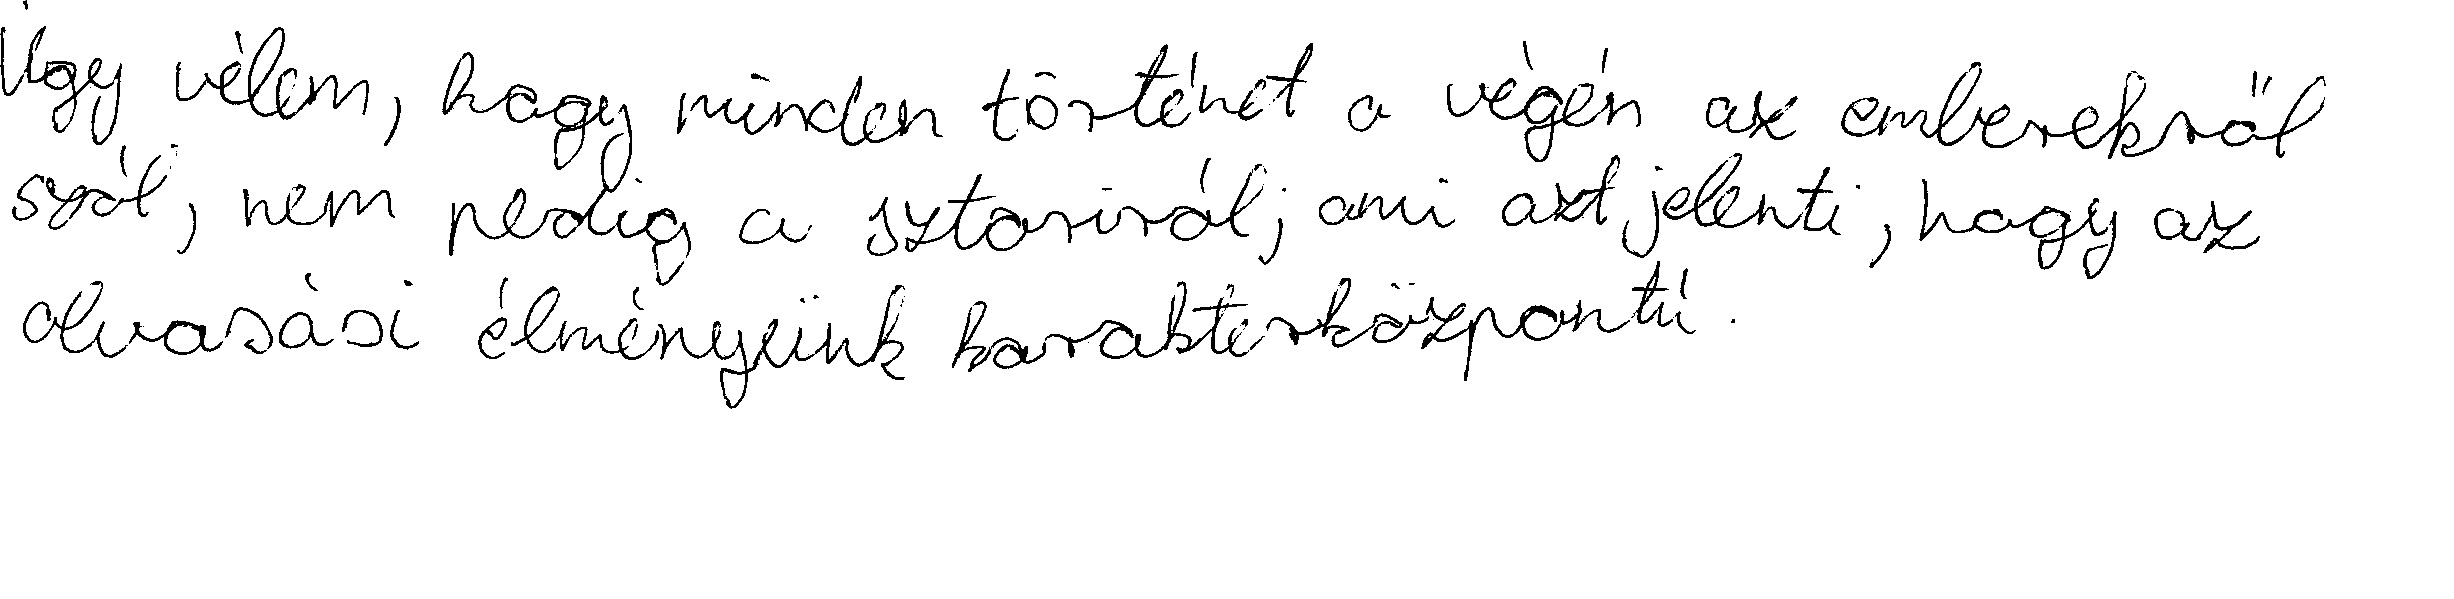 Úgy vélem, hogy minden történet a végén az emberekről
szól, nem pedig a sztoriról; ami azt jelenti, hogy az
olvasási élményeünk karakterközpontú.